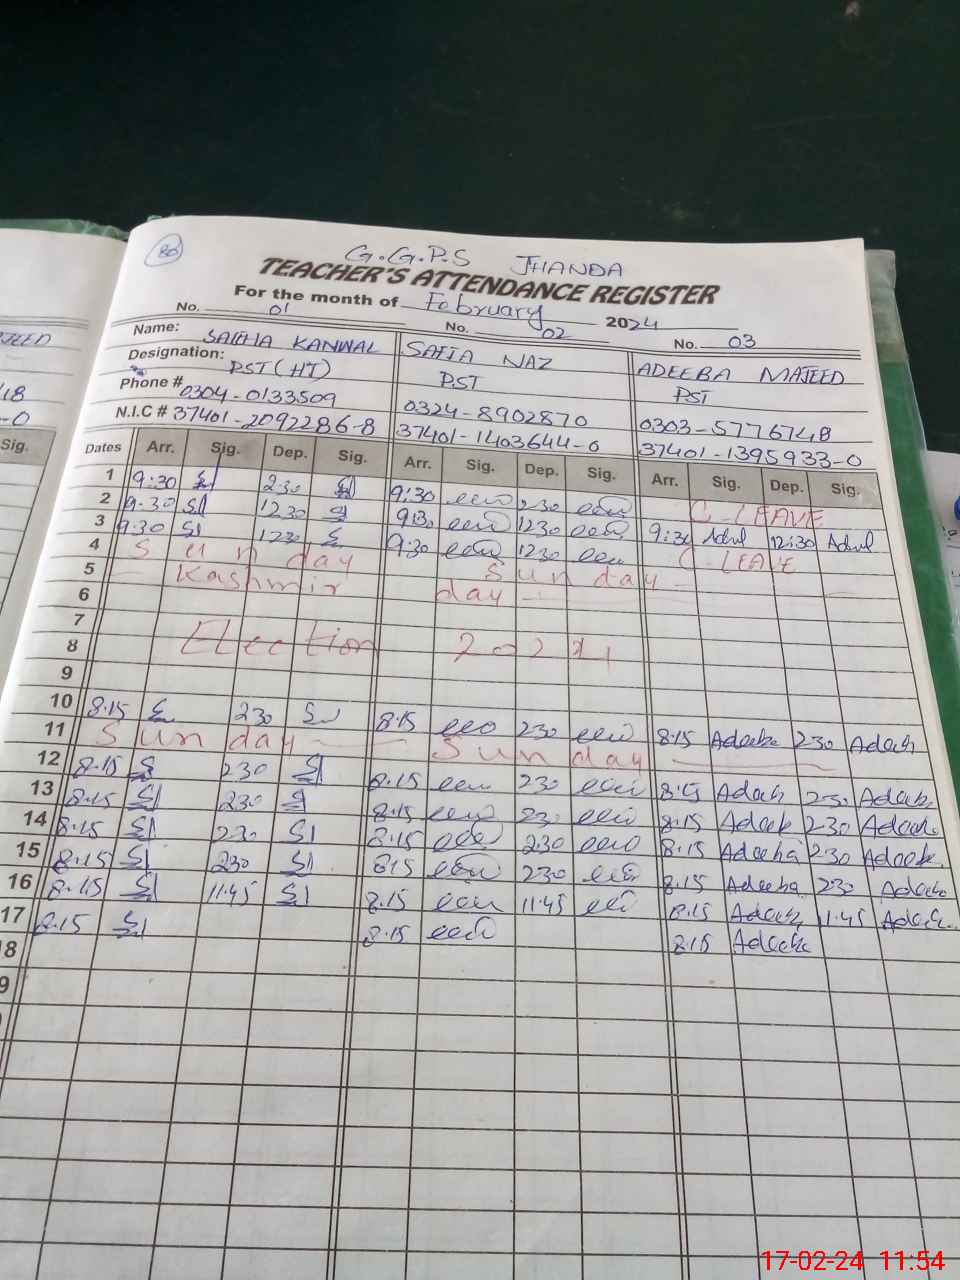 80
G.G.P.S JHANDA
TEACHER'S ATTENDANCE REGISTER
For the month of February 2024
No. 01 No. 02 No. 03
Name: SAIHA KANWAL SAFIA NAZ ADEEBA MAJEED
Designation: PST (HT) PST PST
Phone # 0304-0133509 0324-8902870 0303-5776748
N.I.C # 37401-2092286-8 37401-1403644-0 37401-1395933-0
Dates Arr. Sig. Dep. Sig. Arr. Sig. Dep. Sig. Arr. Sig. Dep. Sig.
1 9:30 230 9:30 230 C-LEAVE
2 9:30 1230 930 1230 9:30 12:30
3 9:30 1230 9:30 1230 C LEAVE
4 Sunday Sunday
5 Kashmir day
6
7
8 Election 2024
9
10 8.15 230 8.15 230 8.15 Adeeba 230
11 Sunday Sunday
12 8.15 230 8.15 230 8.15 230
13 8.15 230 8.15 230 8.15 230
14 8.15 230 8.15 230 8.15 Adeeba 230
15 8.15 230 815 230 8.15 Adeeba 230
16 8.15 11:45 8.15 11:45 8.15 11:45
17 8.15 8.15 8.15 Adeeba
18
9
JEED
18
-0
Sig.
17-02-24 11:54